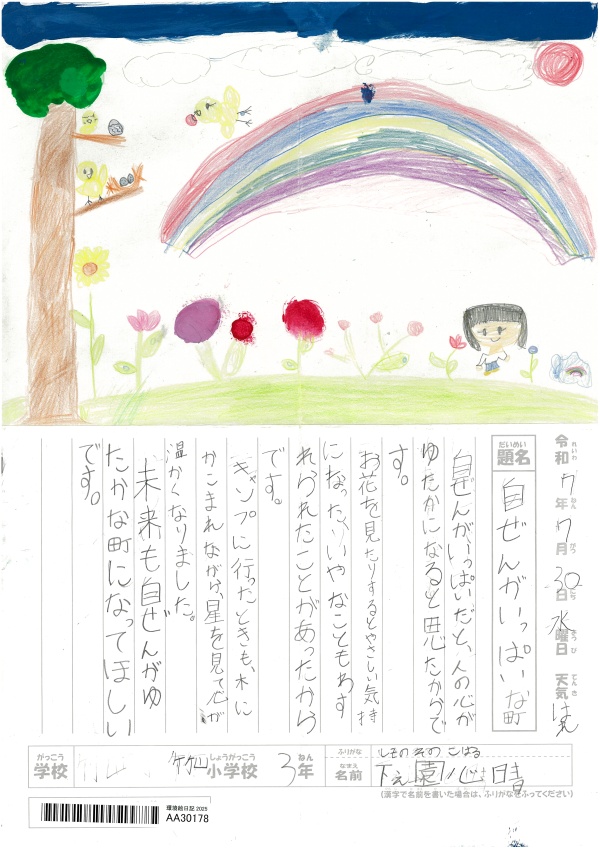 令和7年7月30日水曜日 天気 晴
れいわ ねん がつ にち ようび てんき
だいめい
題名
自ぜんがいっぱいな町
自ぜんがいっぱいだと、人の心が
ゆたかになると思たからで
す。
お花を見たりするとやさしい気持
になったり、いやなこともわす
れられたことがあったから
です。
キャンプに行ったときも、木に
かこまれながら、星を見て心が
温かくなりました。
未来も自ぜんがゆ
たかな町になってほしい
です。
がっこう
学校
竹山
しょうがっこう
小学校
3年
ねん
ふりがな
しもぞの こはる
なまえ
名前
下園心晴
(漢字で名前を書いた場合は、ふりがなをふってください)
環境絵日記 2025
AA30178